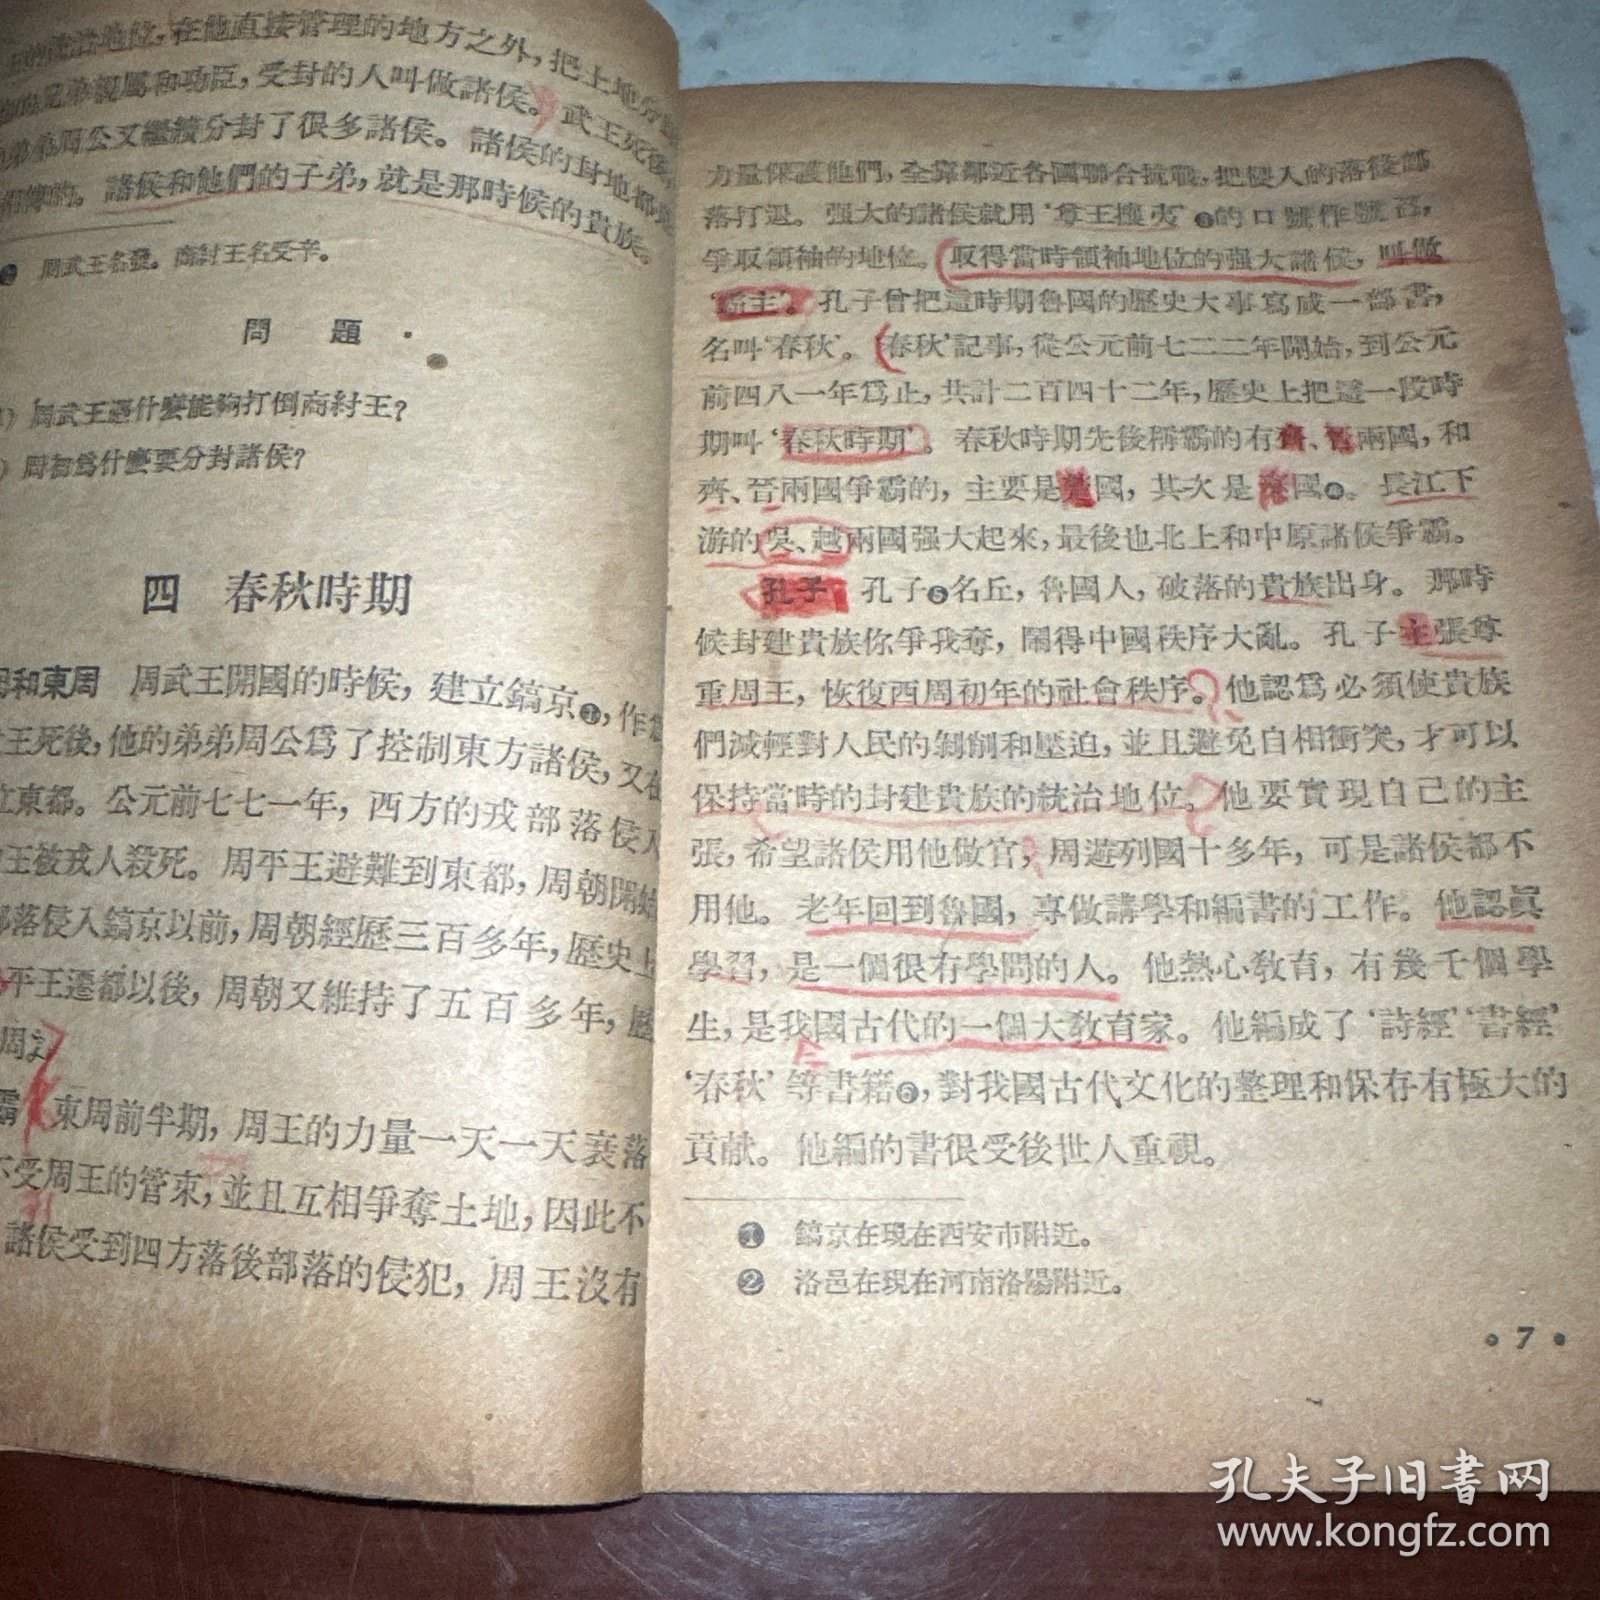 的統治地位，在他直接管理的地方之外，把土地分
兄弟親屬和功臣，受封的人叫做諸侯。武王死後，
弟弟周公又繼續分封了很多諸侯。諸侯的封地都
相傳的。諸侯和他們的子弟，就是那時候的貴族。
周武王名發。商紂王名受辛。
問 題
周武王憑什麼能夠打倒商紂王？
周初爲什麼要分封諸侯？
四 春秋時期
和東周 周武王開國的時候，建立鎬京❶，作
王死後，他的弟弟周公爲了控制東方諸侯，又在
立東都。公元前七七一年，西方的戎部落侵入
王被戎人殺死。周平王避難到東都，周朝開始
部落侵入鎬京以前，周朝經歷三百多年，歷史上
平王遷都以後，周朝又維持了五百多年，歷
周。
霸 東周前半期，周王的力量一天一天衰落
不受周王的管束，並且互相爭奪土地，因此不
諸侯受到四方落後部落的侵犯，周王沒有
力量保護他們，全靠鄰近各國聯合抗戰，把侵入的落後部
落打退。强大的諸侯就用‘尊王攘夷’❸的口號作號召，
爭取領袖的地位。取得當時領袖地位的强大諸侯，叫做
‘霸主’。孔子曾把這時期魯國的歷史大事寫成一部書，
名叫‘春秋’。‘春秋’記事，從公元前七二二年開始，到公元
前四八一年爲止，共計二百四十二年，歷史上把這一段時
期叫‘春秋時期’。春秋時期先後稱霸的有齊、晉兩國，和
齊、晉兩國爭霸的，主要是楚國，其次是秦國❹。長江下
游的吳、越兩國强大起來，最後也北上和中原諸侯爭霸。
孔子 孔子❺名丘，魯國人，破落的貴族出身。那時
候封建貴族你爭我奪，鬧得中國秩序大亂。孔子主張尊
重周王，恢復西周初年的社會秩序。他認爲必須使貴族
們減輕對人民的剝削和壓迫，並且避免自相衝突，才可以
保持當時的封建貴族的統治地位。他要實現自己的主
張，希望諸侯用他做官，周遊列國十多年，可是諸侯都不
用他。老年回到魯國，專做講學和編書的工作。他認眞
學習，是一個很有學問的人。他熱心敎育，有幾千個學
生，是我國古代的一個大敎育家。他編成了‘詩經’‘書經’
‘春秋’等書籍❻，對我國古代文化的整理和保存有極大的
貢献。他編的書很受後世人重視。
❶ 鎬京在現在西安市附近。
❷ 洛邑在現在河南洛陽附近。
• 7 •
孔夫子旧书网
www.kongfz.com